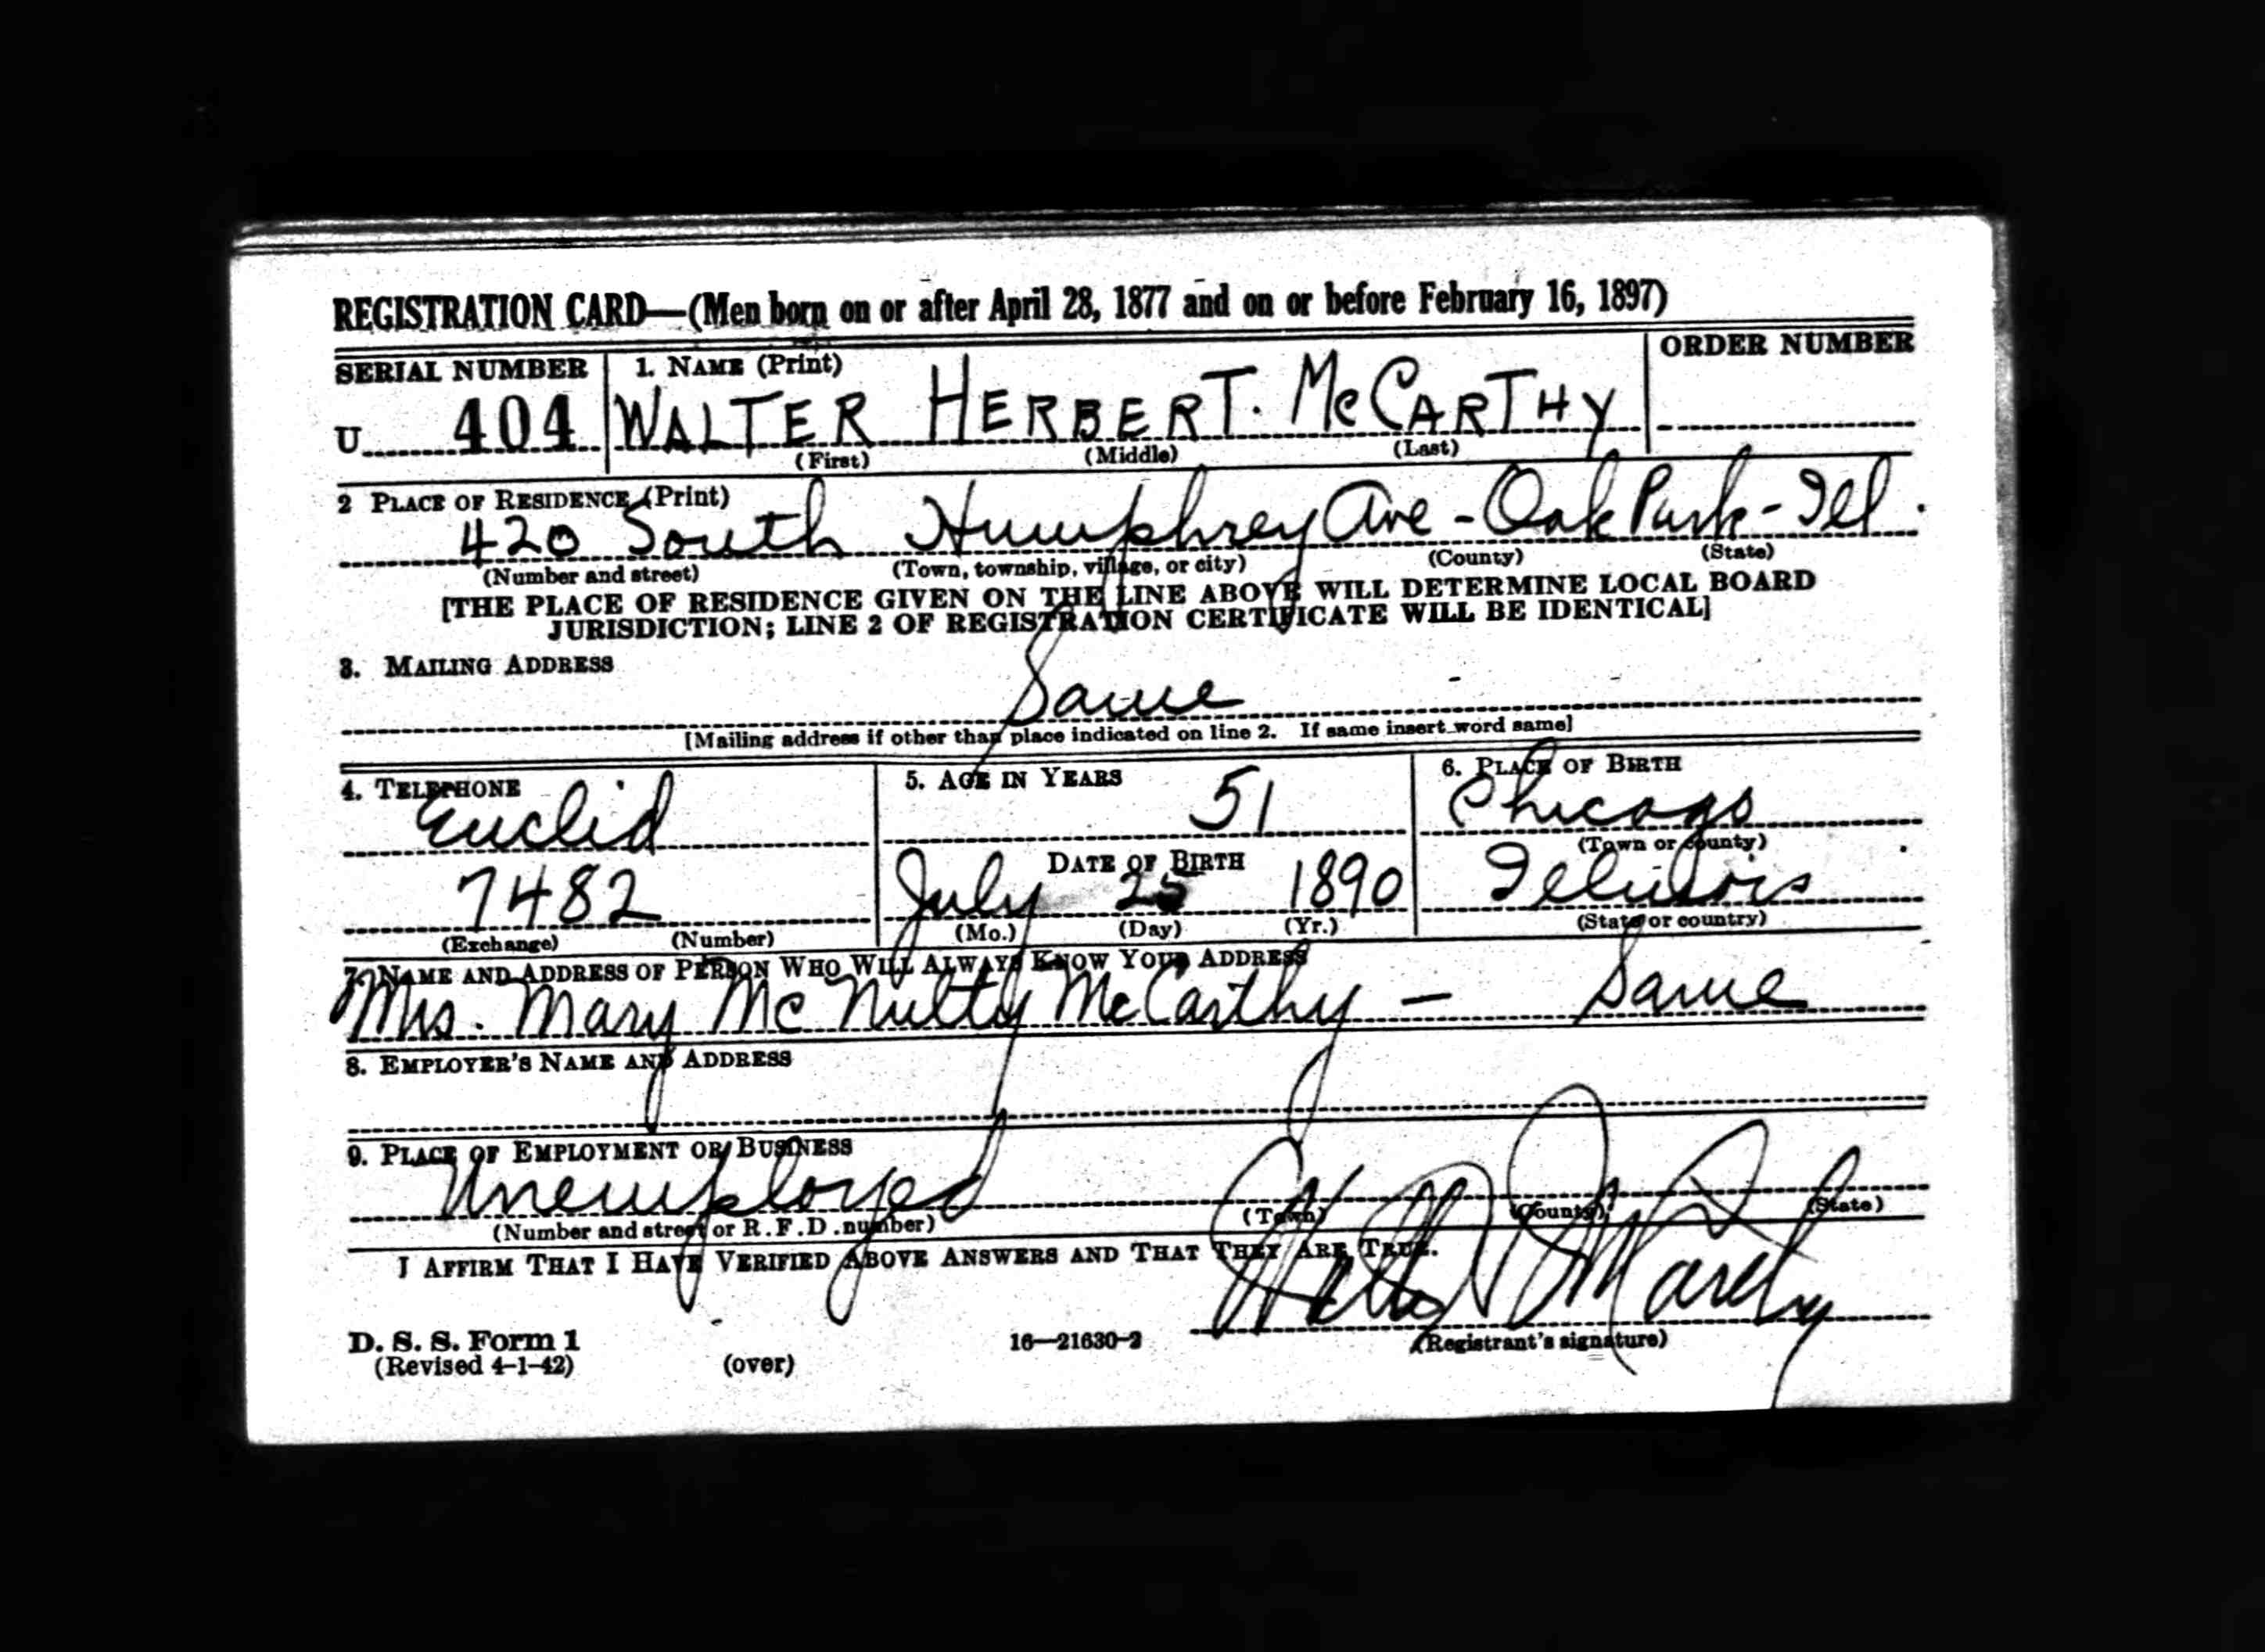 REGISTRATION CARD—(Men born on or after April 28, 1877 and on or before February 16, 1897)
SERIAL NUMBER 1. NAME (Print) ORDER NUMBER
U 404 WALTER HERBERT. McCARTHY
(First) (Middle) (Last)
2 PLACE OF RESIDENCE (Print)
420 South Humphrey Ave - Oak Park - Ill.
(Number and street) (Town, township, village, or city) (County) (State)
[THE PLACE OF RESIDENCE GIVEN ON THE LINE ABOVE WILL DETERMINE LOCAL BOARD
JURISDICTION; LINE 2 OF REGISTRATION CERTIFICATE WILL BE IDENTICAL]
3. MAILING ADDRESS
Same
[Mailing address if other than place indicated on line 2. If same insert word same]
4. TELEPHONE 5. AGE IN YEARS 6. PLACE OF BIRTH
Euclid 51 Chicago
DATE OF BIRTH (Town or county)
7482 July 25 1890 Illinois
(Exchange) (Number) (Mo.) (Day) (Yr.) (State or country)
7. NAME AND ADDRESS OF PERSON WHO WILL ALWAYS KNOW YOUR ADDRESS
Mrs. Mary Mc Nulty McCarthy — Same
8. EMPLOYER'S NAME AND ADDRESS
9. PLACE OF EMPLOYMENT OR BUSINESS
Unemployed
(Number and street or R.F.D. number) (Town) (County) (State)
I AFFIRM THAT I HAVE VERIFIED ABOVE ANSWERS AND THAT THEY ARE TRUE.
D. S. S. Form 1
(Revised 4-1-42) (over) 16—21630-2 (Registrant's signature)